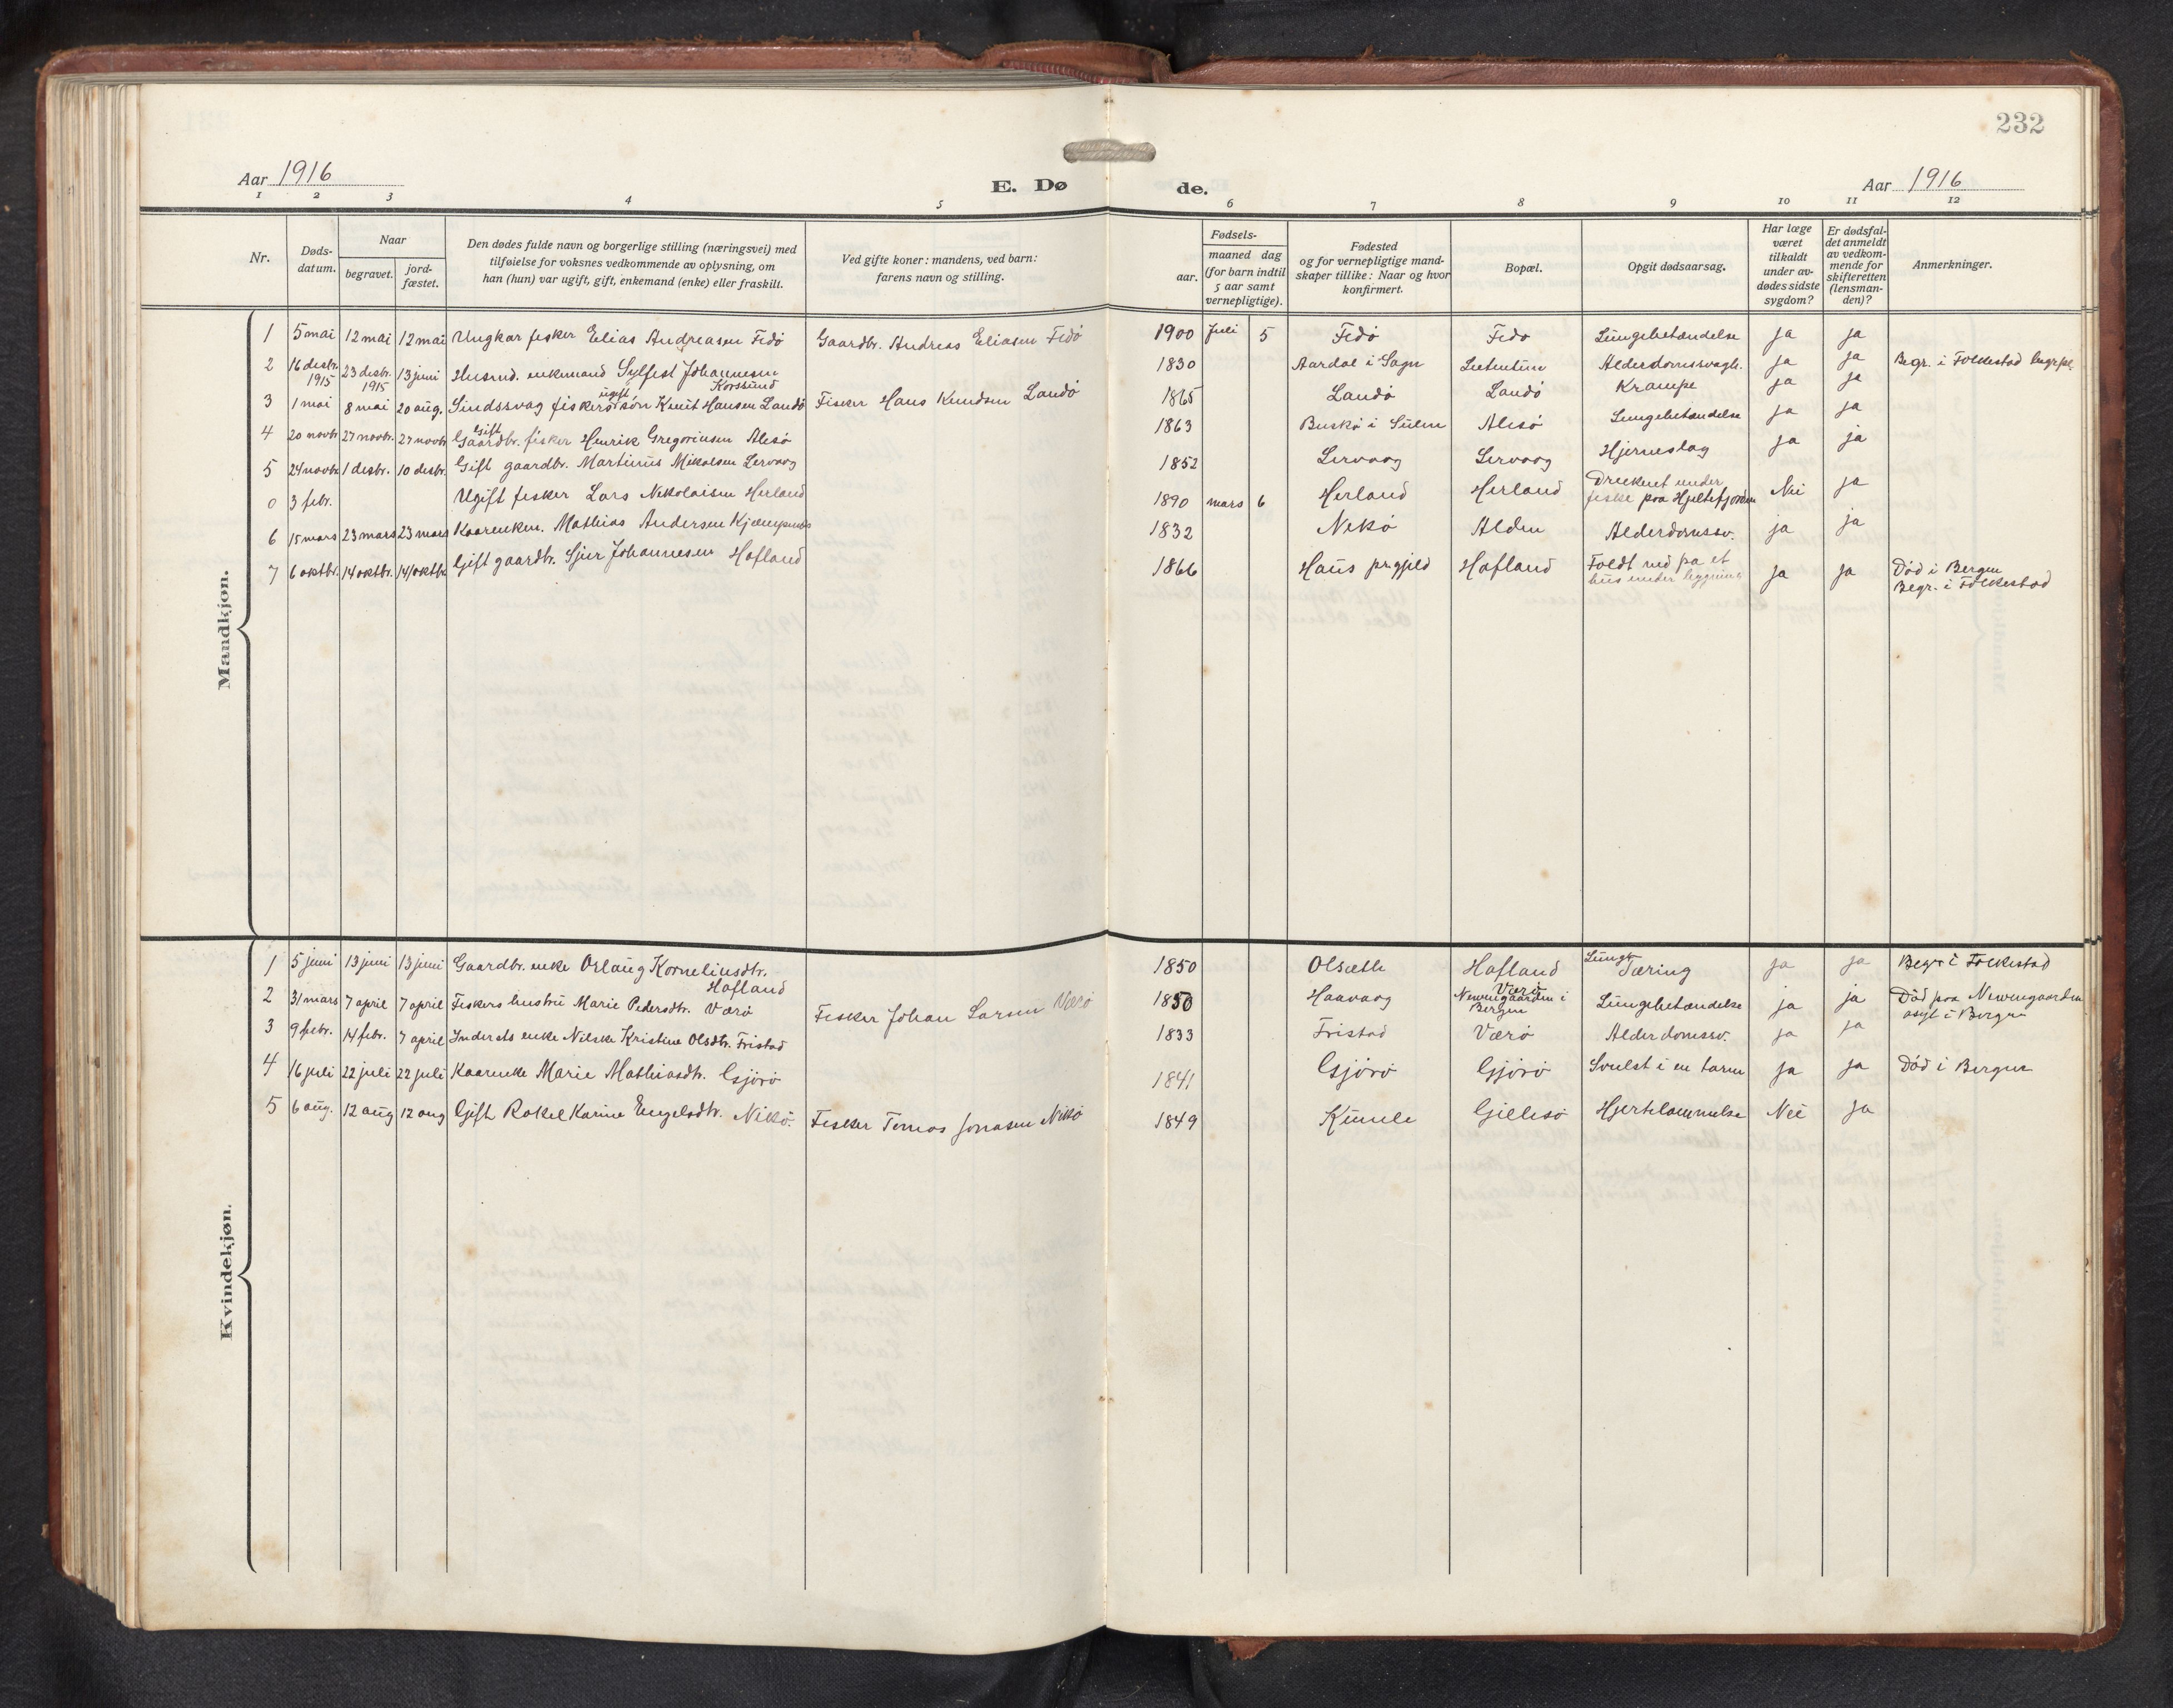 232
Aar 1916
E. Dø de.
Aar 1916
1 2 3 4 5 6 7 8 9 10 11 12
Nr.
Døds-
datum.
Naar
begravet.
jord-
fæstet.
Den dødes fulde navn og borgerlige stilling (næringsvei) med
tilføielse for voksnes vedkommende av oplysning, om
han (hun) var ugift, gift, enkemand (enke) eller fraskilt.
Ved gifte koner: mandens, ved barn:
farens navn og stilling.
Fødsels-
aar.
maaned dag
(for barn indtil
5 aar samt
vernepligtige).
Fødested
og for vernepligtige mand-
skaper tillike: Naar og hvor
konfirmert.
Bopæl.
Opgit dødsaarsag.
Har læge
været
tilkaldt
under av-
dødes sidste
sygdom?
Er dødsfal-
det anmeldt
av vedkom-
mende for
skifteretten
(lensman-
den)?
Anmerkninger.
Mandkjøn.
1 5 mai 12 mai 12 mai Ungkar fisker Elias Andreasen Fedø Gaardbr. Andreas Eliasen Fedø 1900 Juli 5 Fedø Fedø Lungebetændelse ja ja
2 16 desbr. 1915 23 desbr. 1915 13 juni Husmd. enkemand Sylfest Johannesen Korssund 1830 Aardal i Sogn Alderdomssvagh. ja ja Begr. i Folkestad
3 1 mai 8 mai 20 aug. Sindssvag fiskers ugift søn Knut Hansen Landø Fisker Hans Knudsen Landø 1865 Landø Landø Krampe ja ja
4 20 novbr 27 novbr. 27 novbr Gift Gaardbr. fisker Henrik Gregoriusen Alesø 1863 Buskø i Sulen Alesø Lungebetændelse ja ja
5 24 novbr. 1 desbr. 10 desbr. Gift gaardbr. Martinus Mikalsen Lervaag 1852 Lervaag Lervaag Hjerneslag ja ja
0 3 febr. Ugift fisker Lars Nikolaisen Herland 1890 mars 6 Herland Herland Druknet under fiske paa Hjeltefjorden Nei ja
6 15 mars 23 mars 23 mars Kaarenkem. Mathias Andersen Kjempenes 1832 Nekø Alden Alderdomssv. ja ja
7 6 oktbr. 14 oktbr. 14/oktbr Gift gaardbr. Sjur Johannesen Hofland 1866 Haus prgjeld Hofland Faldt ned pa et hus under bygning ja ja Død i Bergen Begr. i Folkestad
Kvindekjøn.
1 5 juni 13 juni 13 juni Gaardbr. enke Orlaug Korneliusdtr. Hofland 1850 Olsæth Hofland Lunge Tæring ja ja Begr. i Folkestad
2 31 mars 7 april 7 april Fiskers hustru Marie Pedersdtr. Værø Fisker Johan Larsen Værø 1850 Haavaag Værø Nevengaarden i Bergen Lungebetændelse ja ja Død paa Nevengaarden asyl i Bergen
3 9 febr. 14 febr. 7 april Indersts enke Nilske Kristine Olsdtr. Fristad 1833 Fristad Værø Alderdomssv. ja ja
4 16 juli 22 juli 22 juli Kaarenke Marie Mathiasdtr. Gjørø 1841 Gjørø Gjørø Svulst i en tarm ja ja Død i Bergen
5 6 aug. 12 aug 12 aug Gift Rakel Karine Engelsdtr. Nekø. Fisker Tomas Jonasen Nekø 1849 Kumle Gillesø Hjertelammelse Nei ja